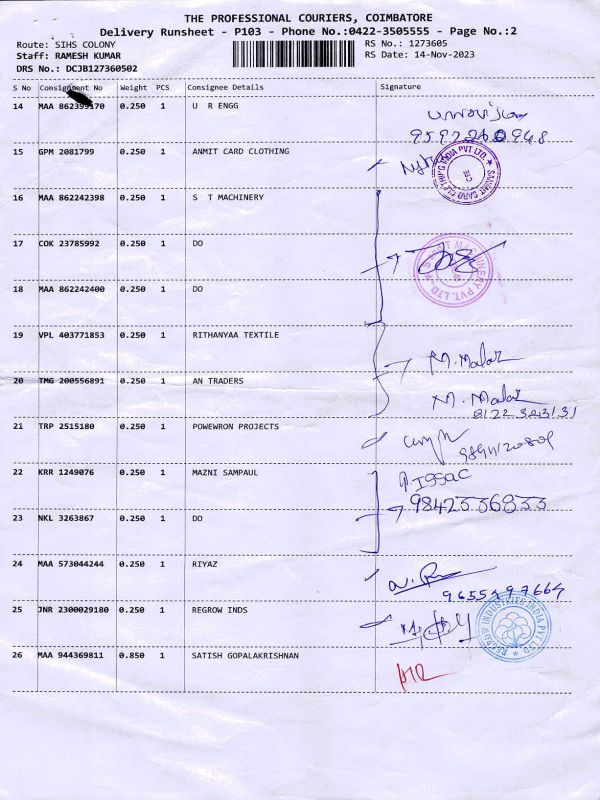 THE PROFESSIONAL COURIERS, COIMBATORE
Delivery Runsheet - P103 - Phone No.:0422-3505555 - Page No.:2
Route: SIHS COLONY RS No.: 1273605
Staff: RAMESH KUMAR RS Date: 14-Nov-2023
DRS No.: DCJB127360502
S No Consignment No Weight PCS Consignee Details Signature
14 MAA 862399170 0.250 1 U R ENGG
15 GPM 2081799 0.250 1 ANMIT CARD CLOTHING
16 MAA 862242398 0.250 1 S T MACHINERY
17 COK 23785992 0.250 1 DO
18 MAA 862242400 0.250 1 DO
19 VPL 403771853 0.250 1 RITHANYAA TEXTILE M. Malar
20 TMG 200556891 0.250 1 AN TRADERS M. Malar
21 TRP 2515180 0.250 1 POWEWRON PROJECTS
22 KRR 1249076 0.250 1 MAZNI SAMPAUL ISSAC
9842336833
23 NKL 3263867 0.250 1 DO
24 MAA 573044244 0.250 1 RIYAZ
25 JNR 2300029180 0.250 1 REGROW INDS
26 MAA 944369811 0.850 1 SATISH GOPALAKRISHNAN